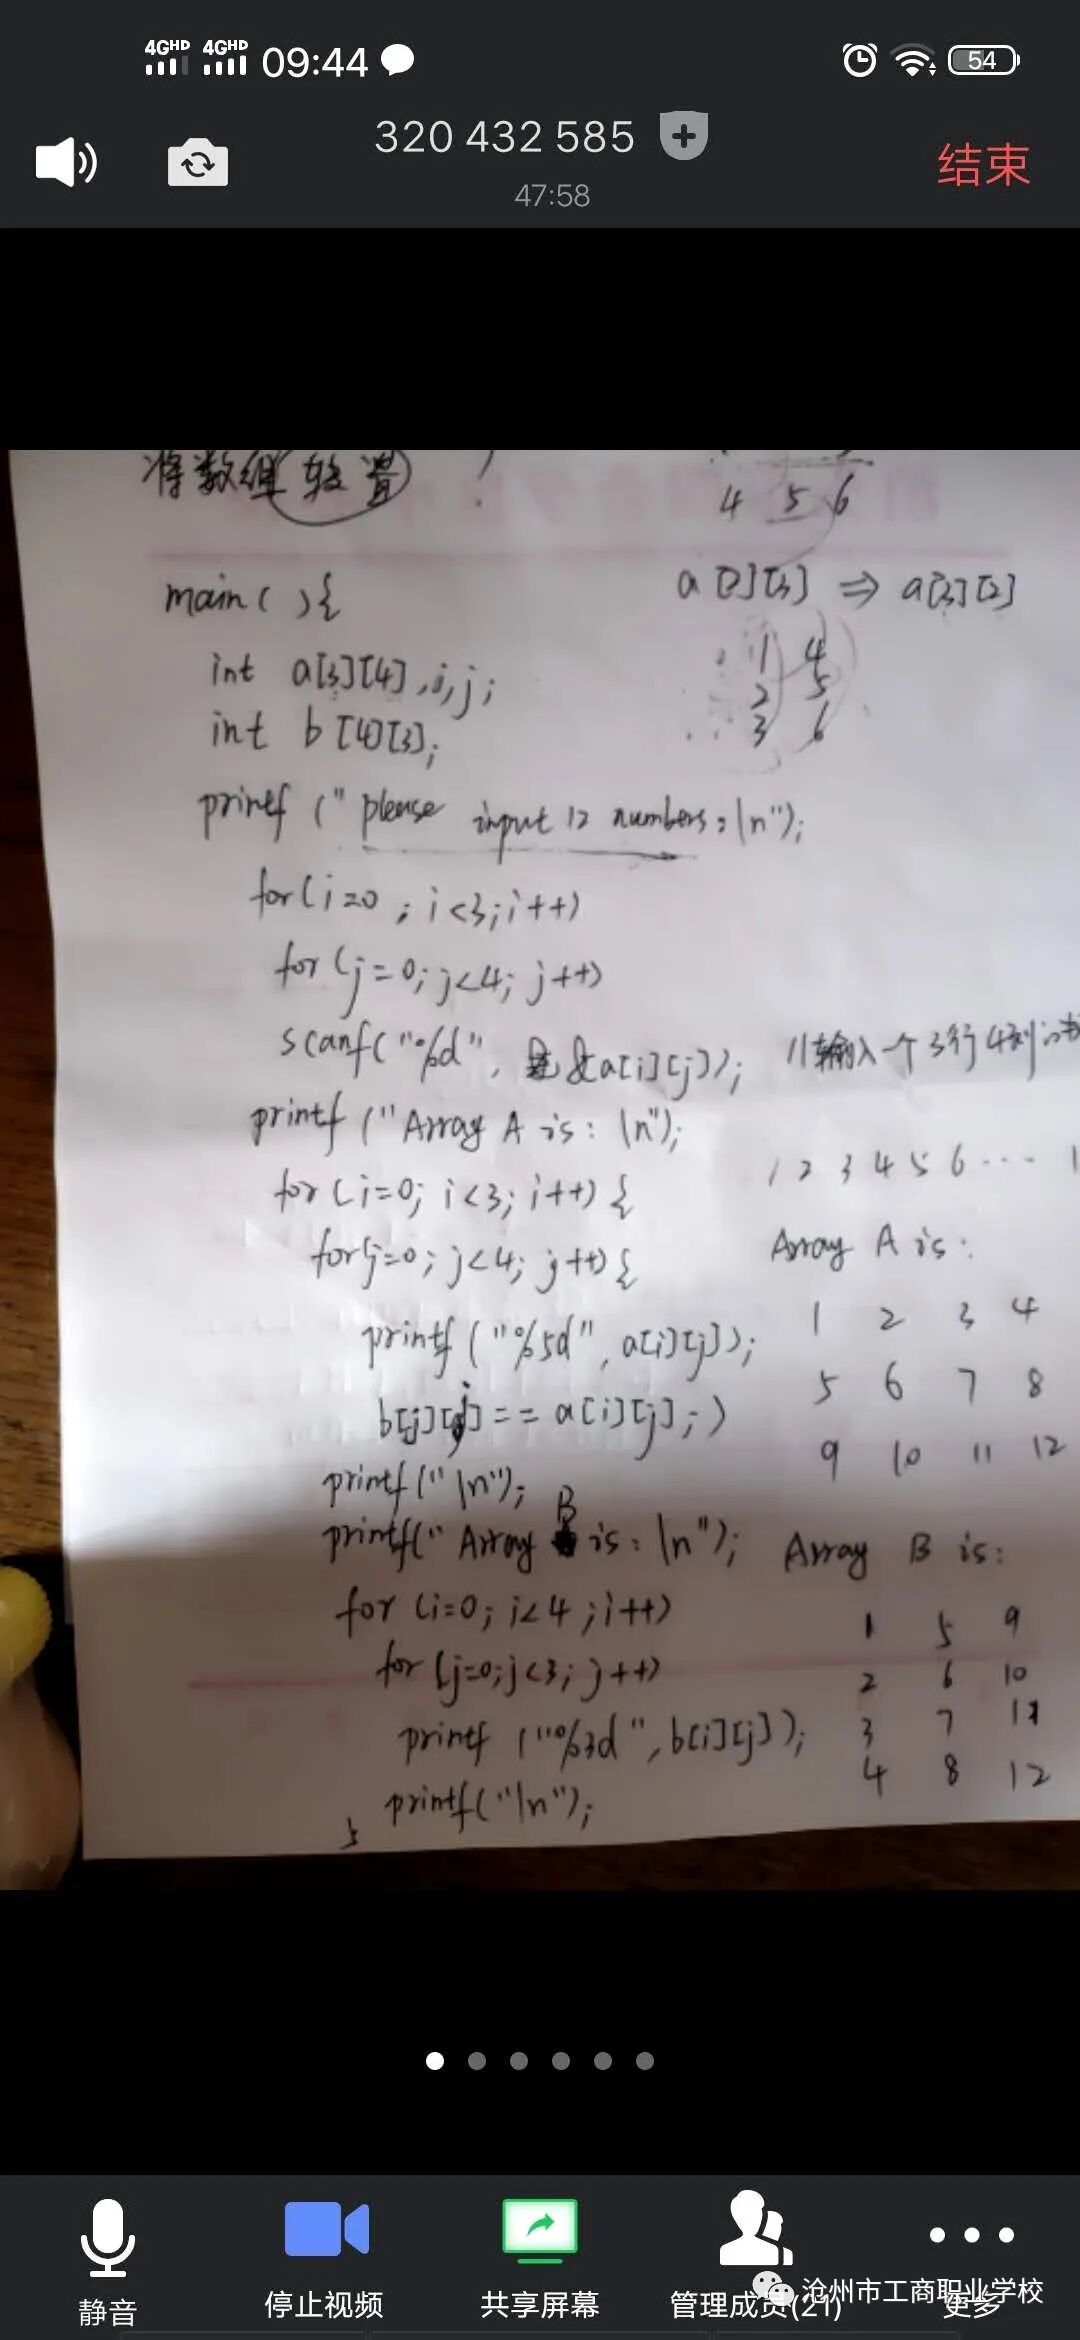 4GHD 4GHD 09:44 54
320 432 585
47:58
结束
将数组转置
4 5 6
main( ){
a[2][3] ⇒ a[3][2]
int a[3][4],i,j;
1 4
2 5
int b[4][3];
3 6
printf ("please input 12 numbers:\n");
for(i=0 ; i<3;i++)
for (j=0; j<4; j++)
scanf("%d", &a[i][j]); //输入一个3行4列
printf ("Array A is: \n");
1 2 3 4 5 6 ... 1
for (i=0; i<3; i++) {
Array A is:
for(j=0; j<4; j++) {
1 2 3 4
printf ("%5d", a[i][j]);
5 6 7 8
b[j][i] == a[i][j]; }
9 10 11 12
printf("\n");
printf("Array B is: \n");
Array B is:
for (i=0; i<4 ;i++)
1 5 9
for (j=0;j<3; j++)
2 6 10
printf ("%3d", b[i][j]);
3 7 11
4 8 12
printf("\n");
}
静音 停止视频 共享屏幕 管理成员(21) 更多
沧州市工商职业学校